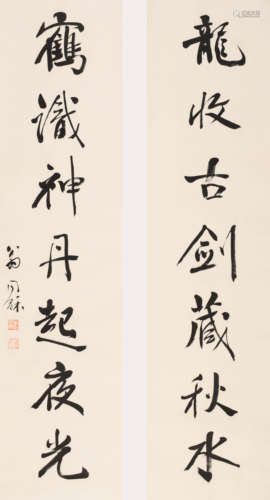 龍收古劍藏秋水
鶴識神丹起夜光
翁同龢